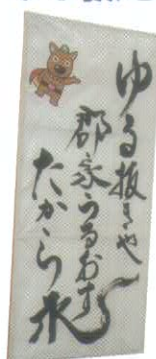 ゆる抜きや
郡家うるおす
たから水